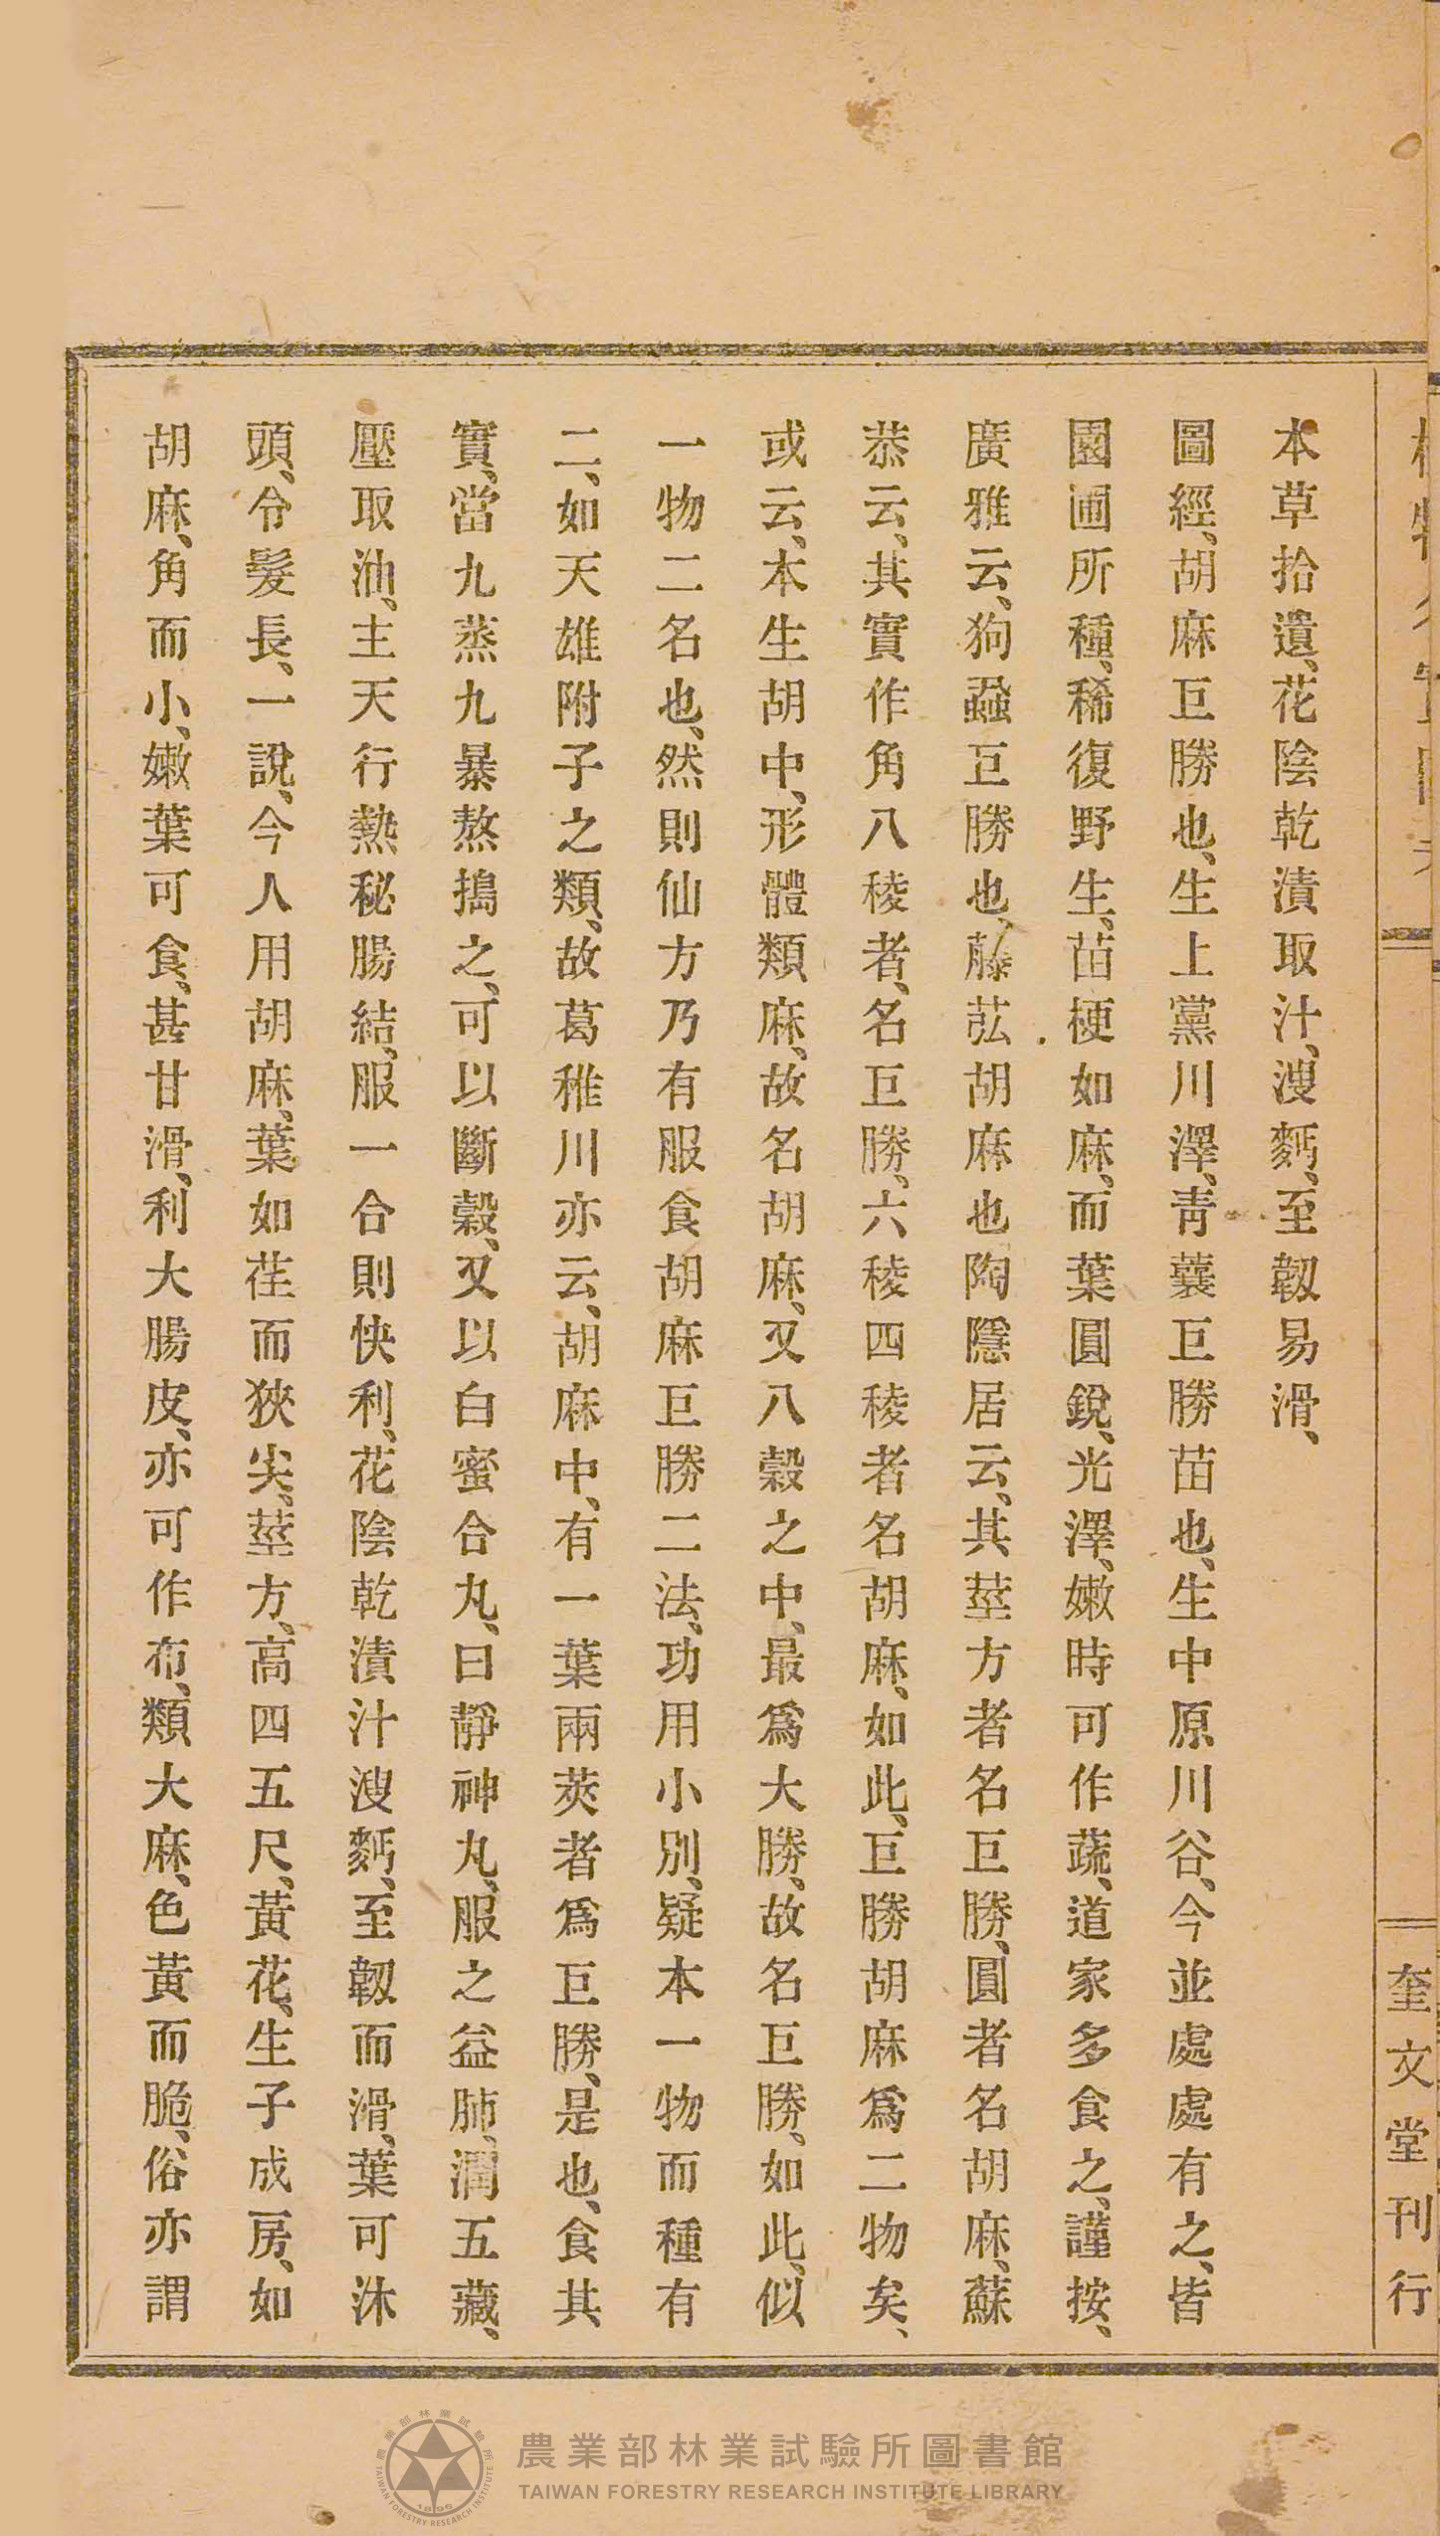 本草拾遺、花陰乾漬取汁、溲麪、至韌易滑、
圖經、胡麻巨勝也、生上黨川澤、靑蘘巨勝苗也、生中原川谷、今並處處有之、皆
園圃所種、稀復野生、苗梗如麻、而葉圓銳、光澤、嫩時可作蔬、道家多食之、謹按、
廣雅云、狗蝨巨勝也、藤苰胡麻也陶隱居云、其莖方者名巨勝、圓者名胡麻、蘇
恭云、其實作角八稜者、名巨勝、六稜四稜者名胡麻、如此、巨勝胡麻爲二物矣、
或云、本生胡中、形體類麻、故名胡麻、又八穀之中、最爲大勝、故名巨勝、如此、似
一物二名也、然則仙方乃有服食胡麻巨勝二法、功用小別、疑本一物而種有
二、如天雄附子之類、故葛稚川亦云、胡麻中、有一葉兩莢者爲巨勝、是也、食其
實、當九蒸九暴熬搗之、可以斷穀、又以白蜜合丸、曰靜神丸、服之益肺、潤五藏、
壓取油、主天行熱秘腸結、服一合則快利、花陰乾漬汁溲麪、至韌而滑、葉可沐
頭、令髮長、一說、今人用胡麻、葉如荏而狹尖、莖方、高四五尺、黃花、生子成房、如
胡麻、角而小、嫩葉可食、甚甘滑、利大腸皮、亦可作布、類大麻、色黃而脆、俗亦謂
奎文堂刊行
農業部林業試驗所圖書館
TAIWAN FORESTRY RESEARCH INSTITUTE LIBRARY